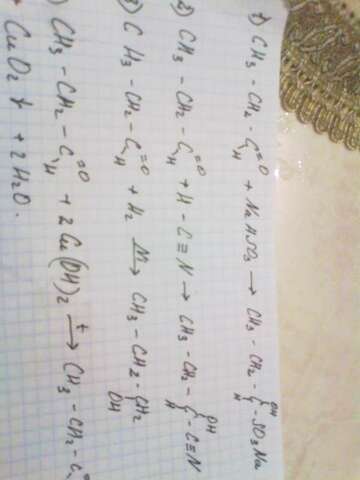 1) CH3 - CH2 - C=O H + NaHSO3 → CH3 - CH2 - C - SO3Na OH H
2) CH3 - CH2 - C=O H + H - C≡N → CH3 - CH2 - C - C≡N OH H
3) CH3 - CH2 - C=O H + H2 Ni→ CH3 - CH2 - CH2 OH
) CH3 - CH2 - C=O H + 2Cu(OH)2 t→ CH3 - CH2 - C
CuO2↓ + 2H2O.